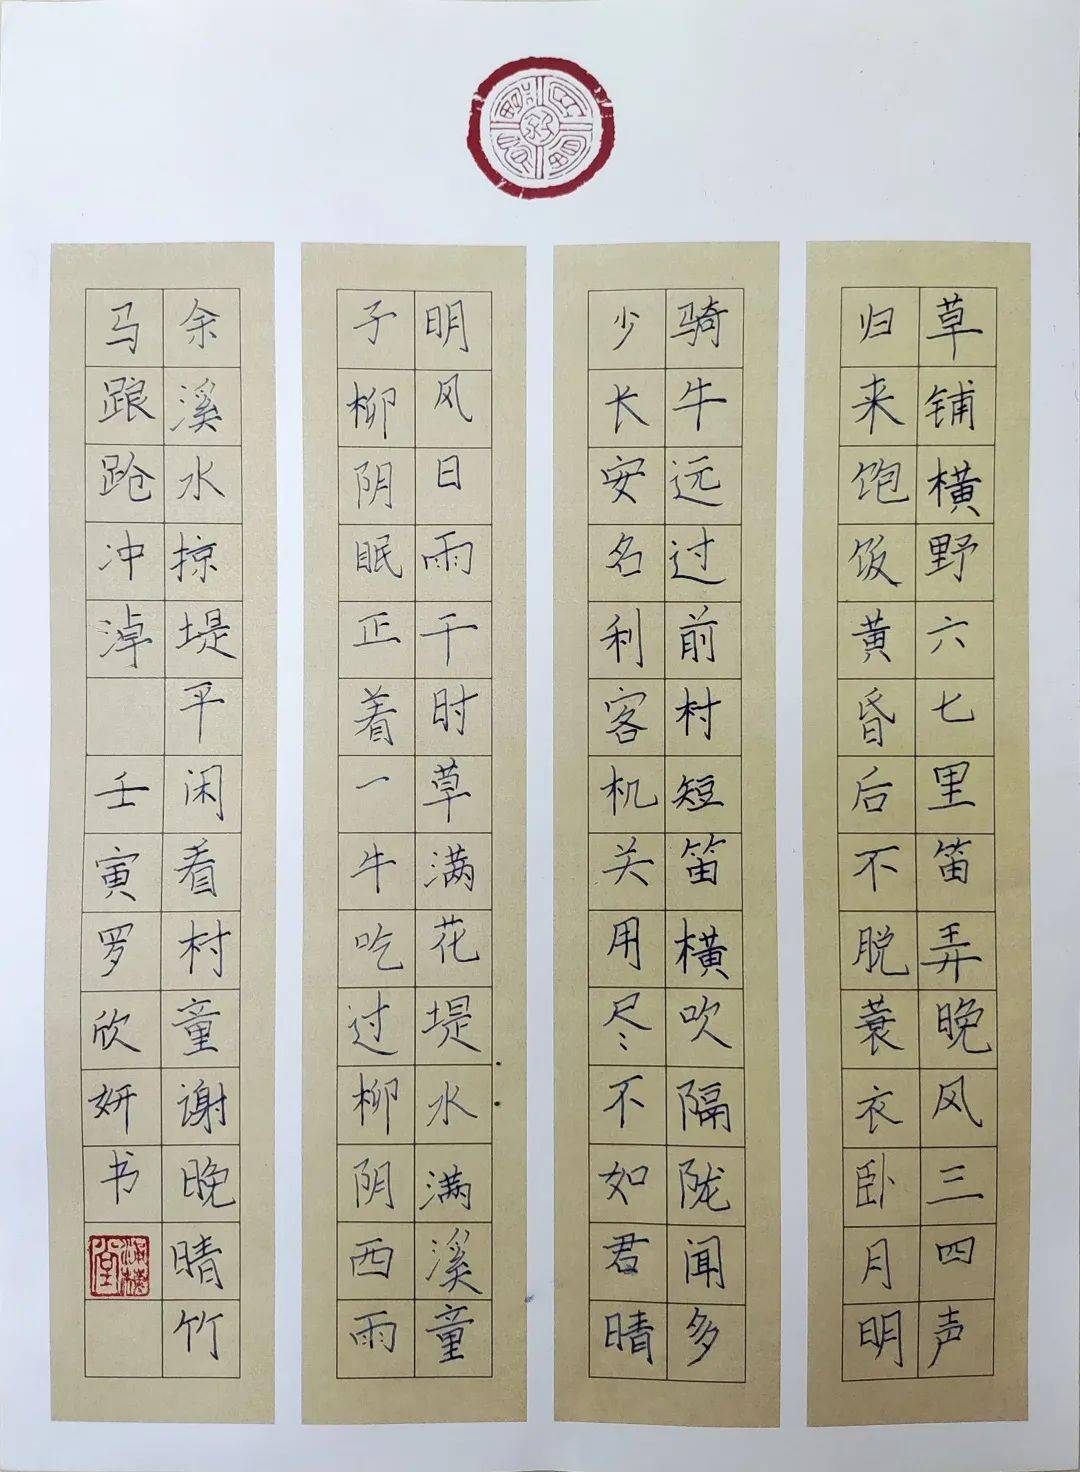 草铺横野六七里笛弄晚风三四声
归来饱饭黄昏后不脱蓑衣卧月明
骑牛远过前村短笛横吹隔陇闻多
少长安名利客机关用尽不如君晴
明风日雨干时草满花堤水满溪童
子柳阴眠正着一牛吃过柳阴西雨
余溪水掠堤平闲看村童谢晚晴竹
马踉跄冲淖
壬寅罗欣妍书